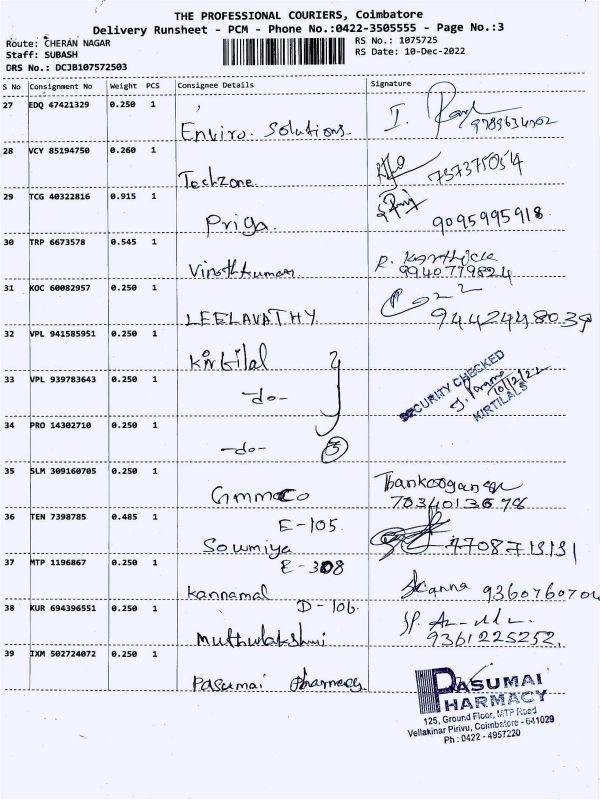 THE PROFESSIONAL COURIERS, Coimbatore
Delivery Runsheet - PCM - Phone No.:0422-3505555 - Page No.:3
Route: CHERAN NAGAR
RS No.: 1075725
Staff: SUBASH
RS Date: 10-Dec-2022
DRS No.: DCJB107572503
S No Consignment No Weight PCS Consignee Details Signature
27 EDQ 47421329 0.250 1
Enviro. Solutions.
28 VCY 85194750 0.260 1
Techzone. 7373750514
29 TCG 40322816 0.915 1
Priga. 9095995918
30 TRP 6673578 0.545 1
Vinothkumar R. Karthick
9940779824
31 KOC 60082957 0.250 1
LEELAVATHY 9442448039
32 VPL 941585951 0.250 1
Kirtilal
SECURITY CHECKED
10/12/22
KIRTILALS
33 VPL 939783643 0.250 1
-do-
34 PRO 14302710 0.250 1
-do- 3
35 SLM 309160705 0.250 1
7034013678
36 TEN 7398785 0.485 1
E-105.
Soumiya 7708713131
37 MTP 1196867 0.250 1
E-308
Kannamal 9360760704
38 KUR 694396551 0.250 1
D-106.
Muthulakshmi 9361225252.
39 IXM 502724072 0.250 1
Pasumai Pharmacy.
PASUMAI
PHARMACY
125, Ground Floor, MTP Road
Vellakinar Pirivu, Coimbatore - 641029
Ph : 0422 - 4957220